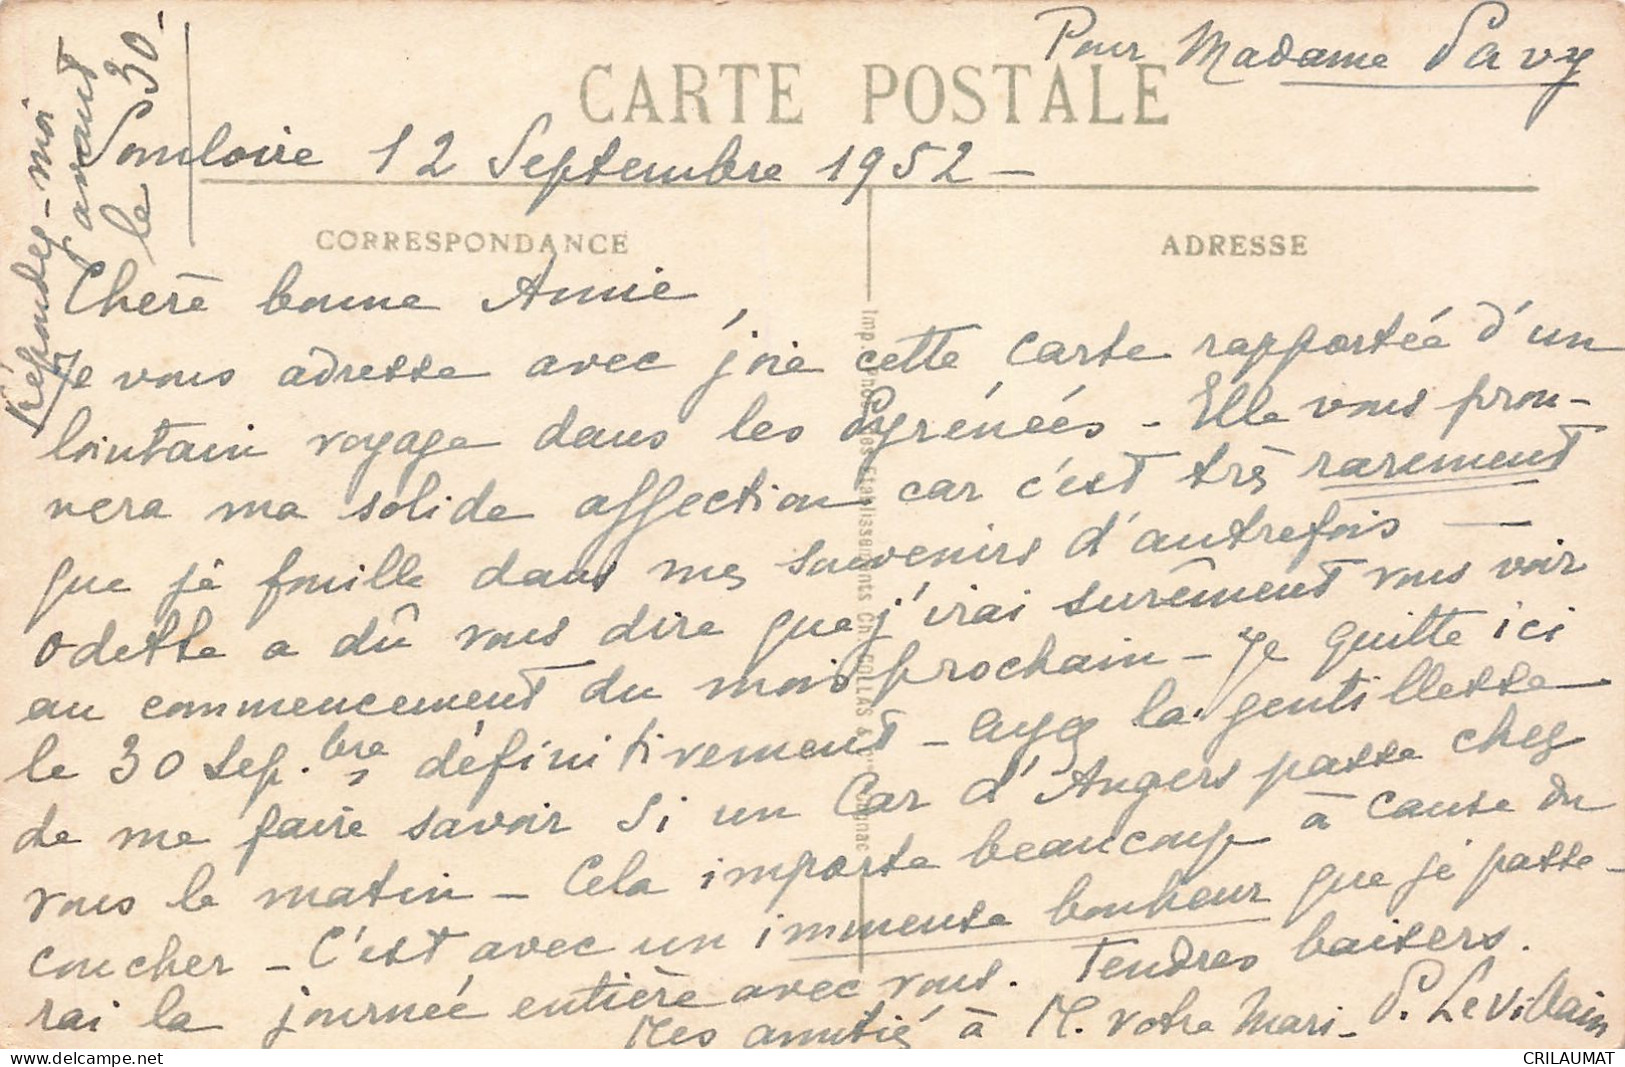 Pour Madame Savy
CARTE POSTALE
Somloire 12 Septembre 1952 -
CORRESPONDANCE
ADRESSE
Répondez-moi
avant
le 30.
Chère bonne Annie,
Je vous adresse avec joie cette carte rapportée d'un
lointain voyage dans les Pyrénées - Elle vous prou-
vera ma solide affection car c'est très rarement
que je fouille dans mes souvenirs d'autrefois —
Odette a dû vous dire que j'irai surêment vous voir
au commencement du mois prochain - Je quitte ici
le 30 Sep.bre définitivement - Ayez la gentillesse
de me faire savoir si un Car d'Angers passe chez
vous le matin - Cela importe beaucoup à cause du
coucher - C'est avec un immense bonheur que je passe-
rai la journée entière avec vous. Tendres baisers.
Mes amitié à M. votre Mari - P. Levillain
Imp. Phot. des Etablissements Ch. COLLAS & Cie Cognac
CRILAUMAT